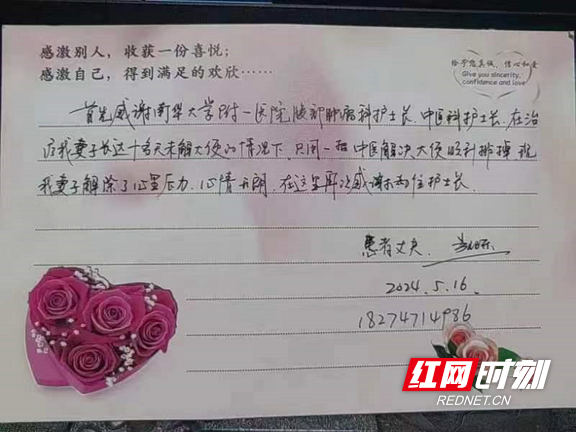 感激别人，收获一份喜悦；
感激自己，得到满足的欢欣……
给予您真诚、信心和爱
Give you sincerity,
confidence and love
首先感谢南华大学附一医院腹部肿瘤科护士长、中医科护士长、在治
疗我妻子长达十多天未解大便的情况下、只用一招中医解决大便顺利排掉、
我妻子解除了心里压力、心情开朗、在这里再次感谢两位护士长、
患者丈夫、
2024.5.16
18274714986
红网时刻
REDNET.CN